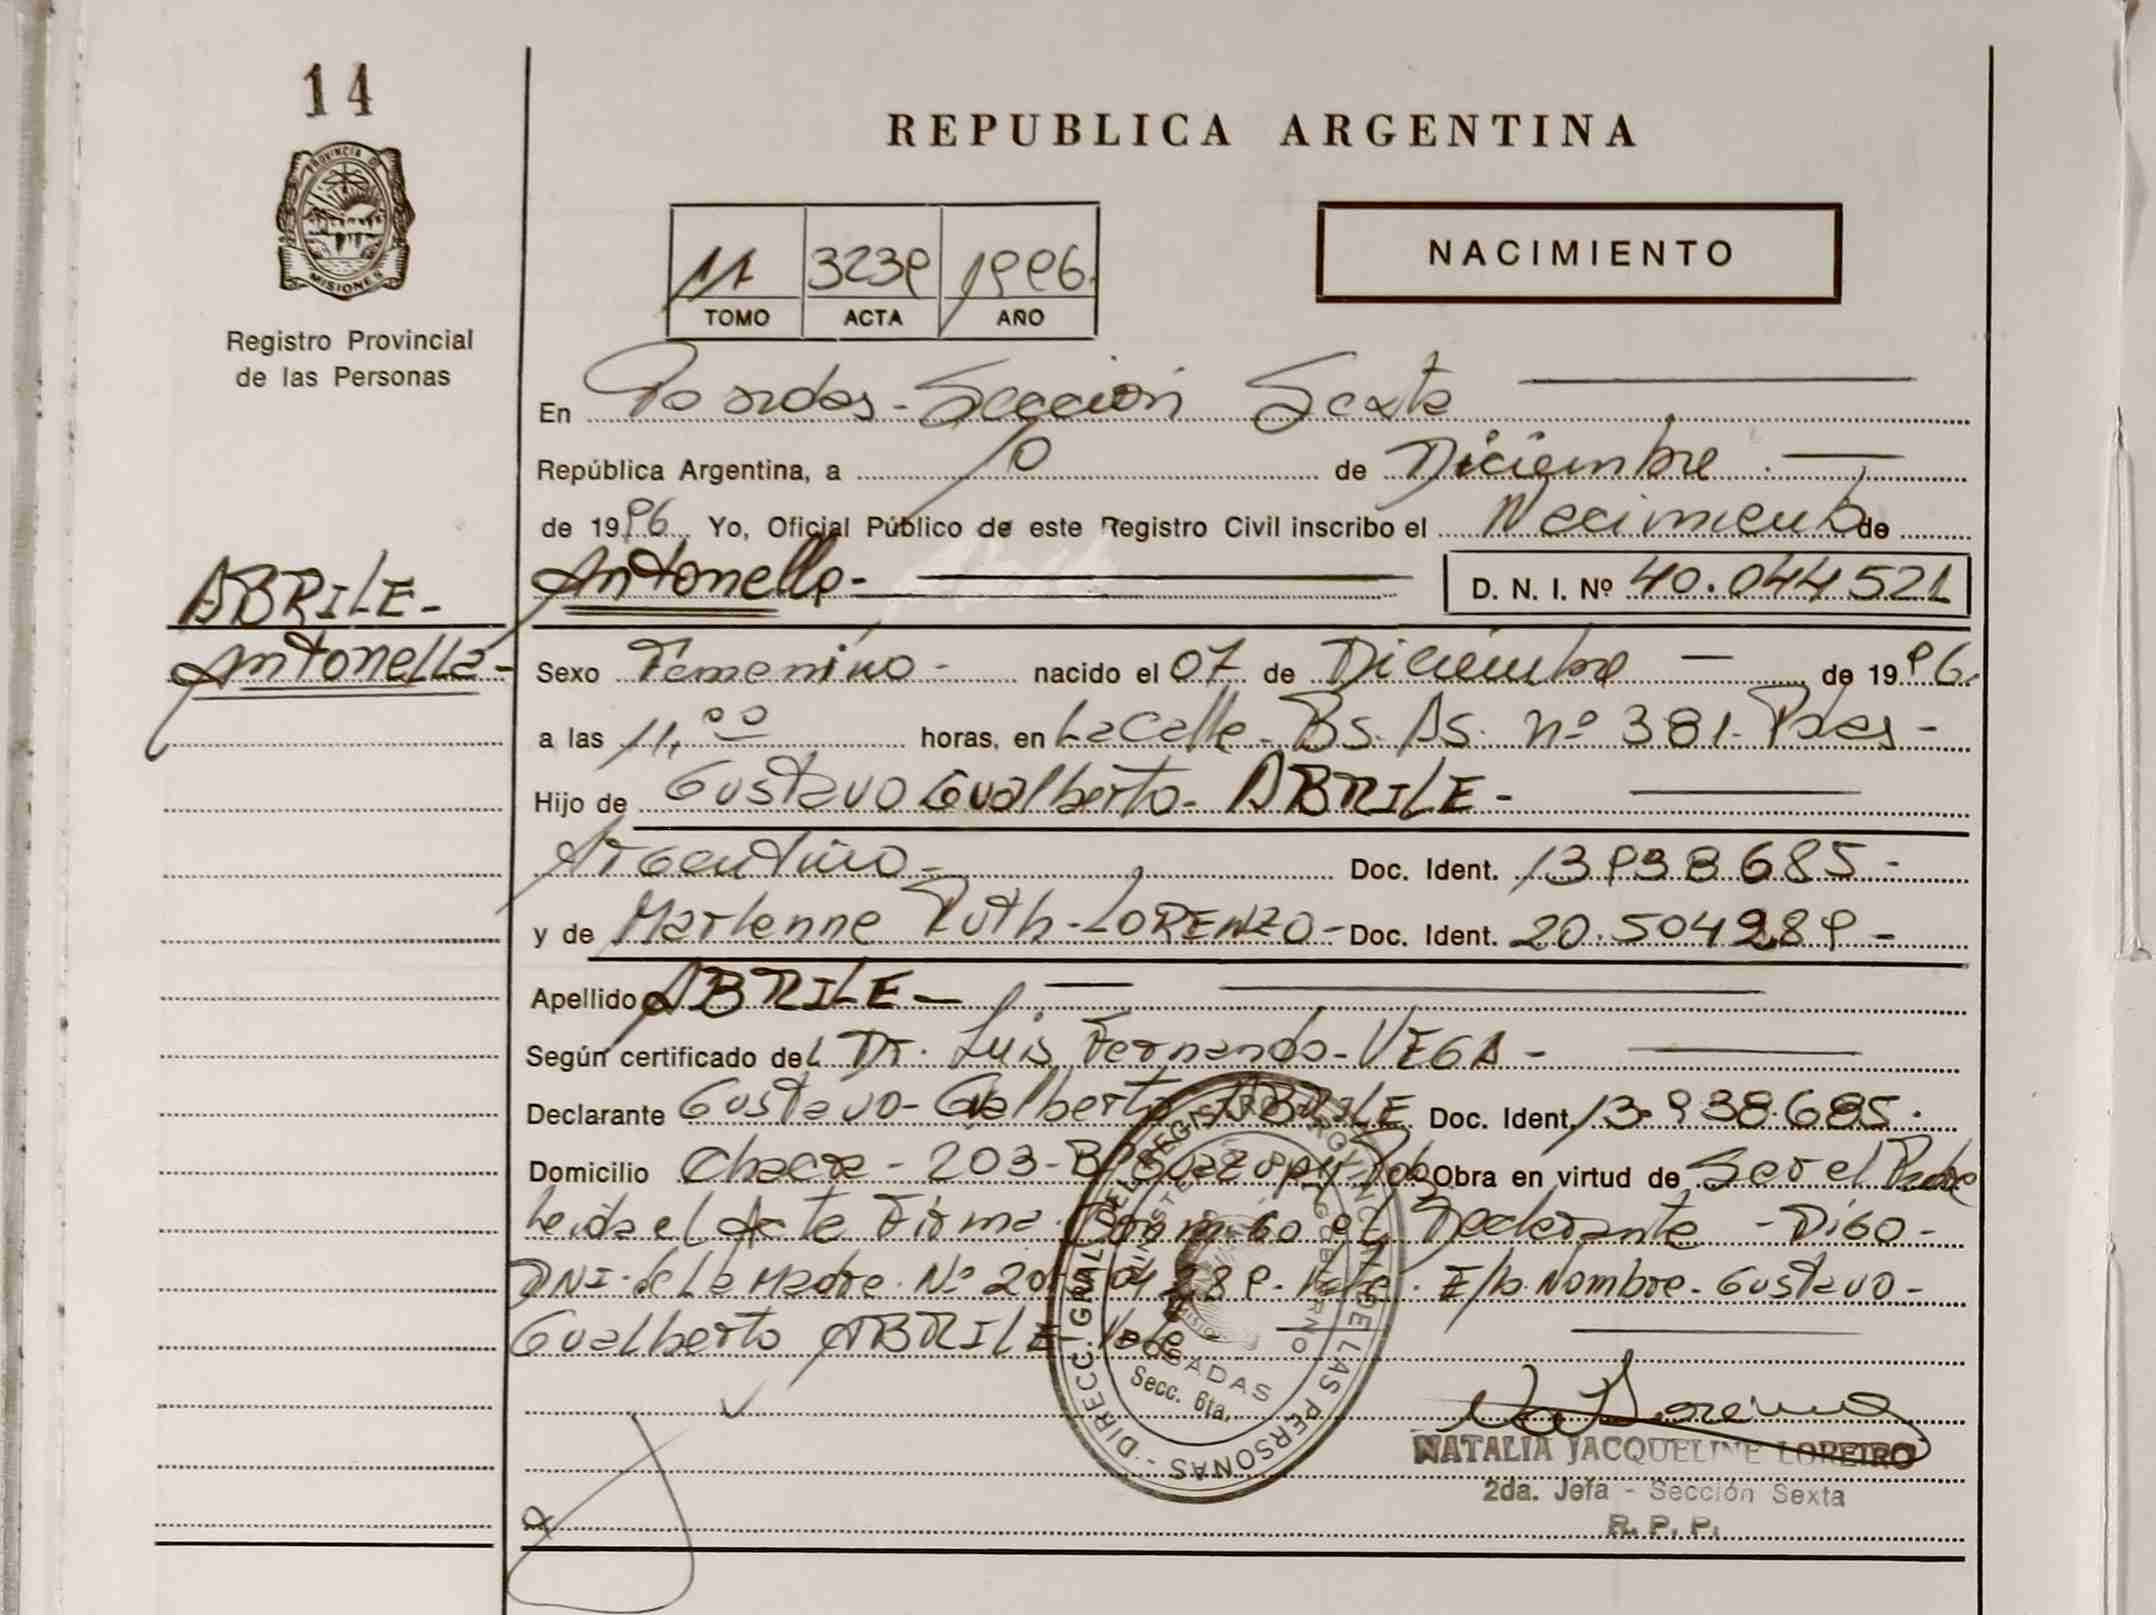 14
PROVINCIA DE
MISIONES
Registro Provincial
de las Personas
REPUBLICA ARGENTINA
11 3239 1996.
TOMO ACTA AÑO
NACIMIENTO
En Posadas - Sección Sexta
República Argentina, a 10 de Diciembre.
de 1996 Yo, Oficial Público de este Registro Civil inscribo el Nacimiento de
ABRILE -
Antonella -
Antonella -
D. N. I. Nº 40.044521
Sexo Femenino - nacido el 07 de Diciembre de 1996.
a las 11,00 horas, en La Calle Bs. As. Nº 381. Pdas -
Hijo de Gustavo Gualberto - ABRILE -
Argentino - Doc. Ident. 13938685 -
y de Marlenne Ruth - LORENZO - Doc. Ident. 20.504289 -
Apellido ABRILE -
Según certificado del Dr. Luis Fernando - VEGA -
Declarante Gustavo - Gualberto ABRILE Doc. Ident. 13.938.685.
Domicilio Chacra - 203 - Obra en virtud de Ser el Padre
Leida el Acta Firma Conmigo el Declarante - Digo -
DNI. de La Madre. Nº 20.504289. Vale. E/b. Nombre. Gustavo -
Gualberto ABRILE Vale
DIRECC. GRAL. DEL REGISTRO PROVINCIAL DE LAS PERSONAS -
MINISTERIO DE GOBIERNO
POSADAS
Secc. 6ta.
NATALIA JACQUELINE LOREIRO
2da. Jefa - Sección Sexta
R. P. P.